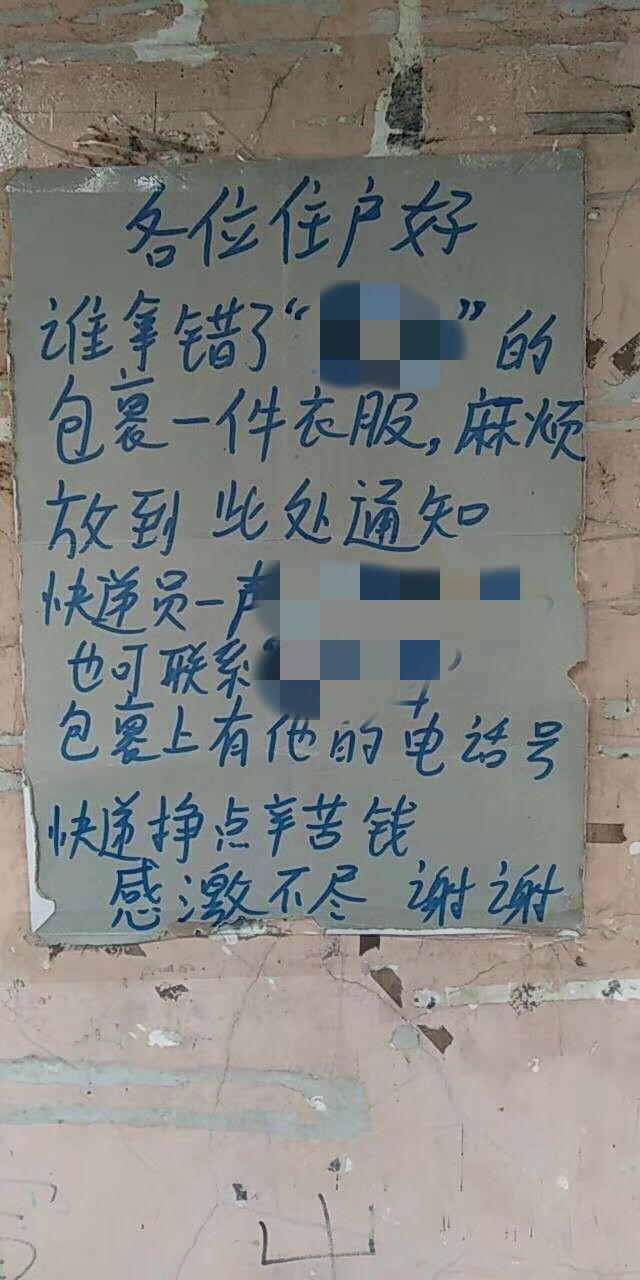 各位住户好
谁拿错了“ ”的
包裹一件衣服,麻烦
放到此处通知
快递员一声
也可联系“
包裹上有他的电话号
快递挣点辛苦钱
感激不尽 谢谢
山